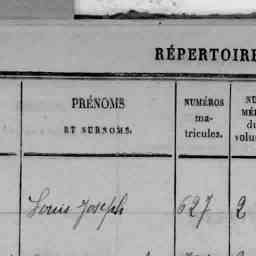 RÉPERTOIRE
PRÉNOMS
ET SURNOMS.
NUMÉROS
ma-
tricules.
Louis Joseph
627
2